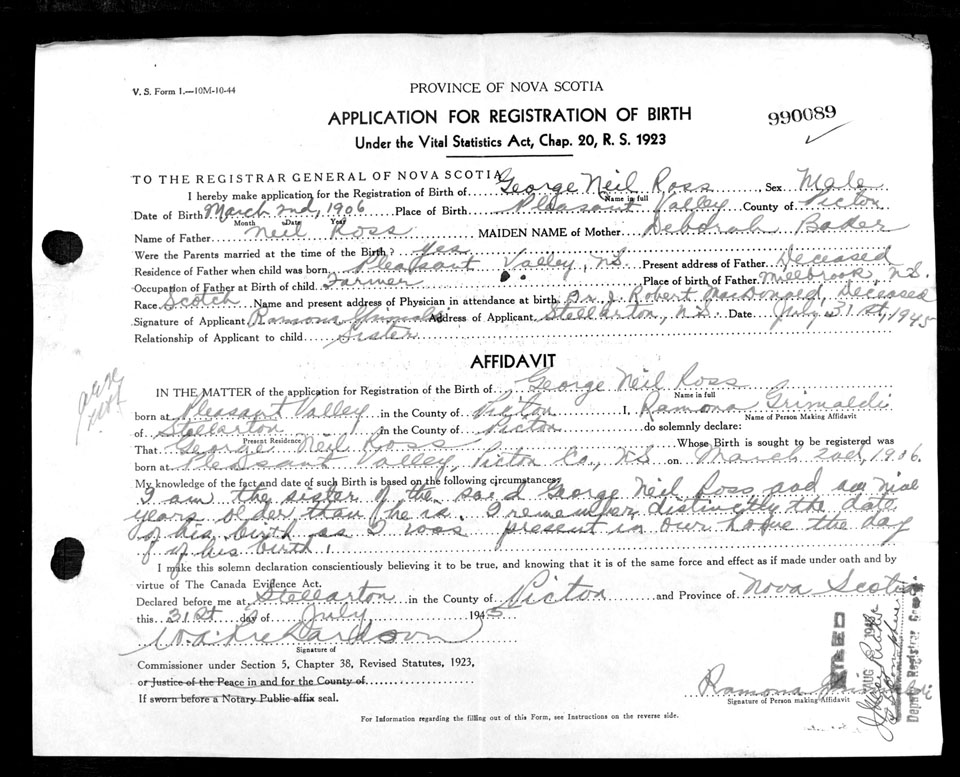 V. S. Form 1.—10M-10-44
PROVINCE OF NOVA SCOTIA
APPLICATION FOR REGISTRATION OF BIRTH
990089
Under the Vital Statistics Act, Chap. 20, R. S. 1923
TO THE REGISTRAR GENERAL OF NOVA SCOTIA
I hereby make application for the Registration of Birth of George Neil Ross Sex Male
Name in full
Date of Birth March 2nd, 1906 Place of Birth Pleasant Valley County of Picton
Month Date Year
Name of Father Neil Ross MAIDEN NAME of Mother Deborah Bader
Were the Parents married at the time of the Birth? Yes
Residence of Father when child was born Pleasant Valley, N.S. Present address of Father Deceased
Occupation of Father at Birth of child Farmer Place of birth of Father Millbrook, N.S.
Race Scotch Name and present address of Physician in attendance at birth Dr. J. Robert MacDonald, Deceased
Signature of Applicant Ramona Grimaldi Address of Applicant Stellarton, N.S. Date July 31st, 1945
Relationship of Applicant to child Sister
AFFIDAVIT
IN THE MATTER of the application for Registration of the Birth of George Neil Ross
Name in full
born at Pleasant Valley in the County of Picton I, Ramona Grimaldi
Name of Person Making Affidavit
of Stellarton in the County of Picton do solemnly declare:
Present Residence
That George Neil Ross Whose Birth is sought to be registered was
born at Pleasant Valley, Picton Co., N.S. on March 2nd, 1906.
My knowledge of the fact and date of such Birth is based on the following circumstances:
I am the sister of the said George Neil Ross and am nine
years older than he is. I remember distinctly the date
of his birth as I was present in our home the day
of his birth.
I make this solemn declaration conscientiously believing it to be true, and knowing that it is of the same force and effect as if made under oath and by
virtue of The Canada Evidence Act.
Declared before me at Stellarton in the County of Picton and Province of Nova Scotia
this 31st day of July 1945
W. A. Richardson
Signature of
Commissioner under Section 5, Chapter 38, Revised Statutes, 1923,
or Justice of the Peace in and for the County of
If sworn before a Notary Public affix seal.
Ramona Grimaldi
Signature of Person making Affidavit
For Information regarding the filling out of this Form, see Instructions on the reverse side.
FILED
AUG
Deputy Registrar General